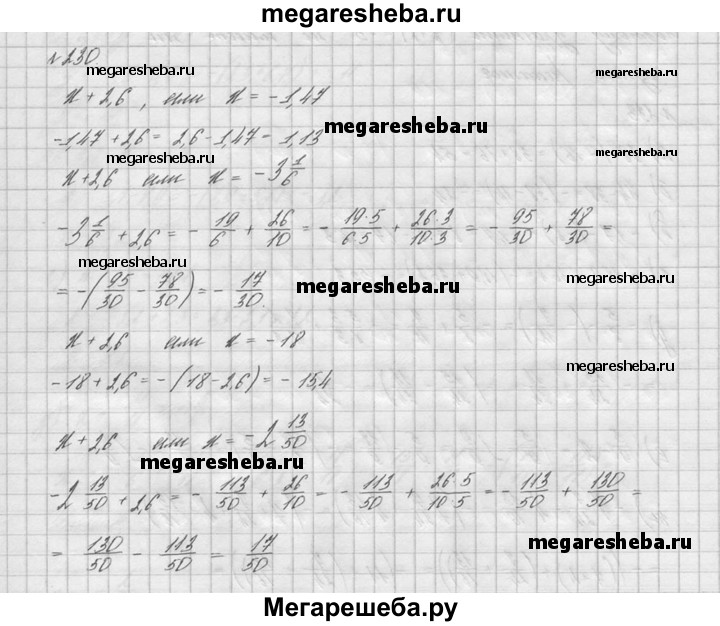 megaresheba.ru
№ 230
megaresheba.ru megaresheba.ru
x + 2,6 , если x = -1,47
-1,47 + 2,6 = 2,6 - 1,47 = 1,13 megaresheba.ru
megaresheba.ru megaresheba.ru
x + 2,6 если x = -3 1/6
-3 1/6 + 2,6 = - 19/6 + 26/10 = - 19·5/6·5 + 26·3/10·3 = - 95/30 + 78/30 =
megaresheba.ru
= -(95/30 - 78/30) = - 17/30. megaresheba.ru megaresheba.ru
x + 2,6 если x = -18
megaresheba.ru
-18 + 2,6 = -(18 - 2,6) = -15,4
x + 2,6 если x = -2 13/50
megaresheba.ru megaresheba.ru
-2 13/50 + 2,6 = - 113/50 + 26/10 = - 113/50 + 26·5/10·5 = - 113/50 + 130/50 =
= 130/50 - 113/50 = 17/50 megaresheba.ru
Мегарешеба.ру